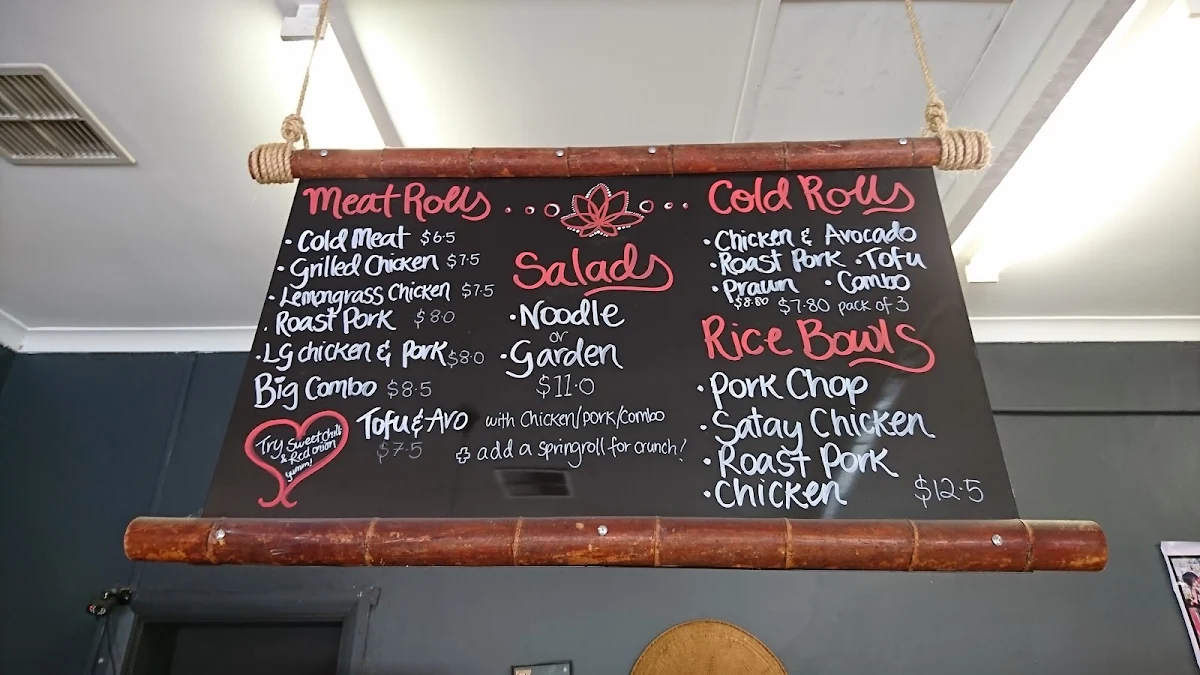 Meat Rolls
• Cold Meat $6.5
• Grilled Chicken $7.5
• Lemongrass Chicken $7.5
• Roast Pork $8.0
• Lg chicken & Pork $8.0
Big Combo $8.5
Tofu & Avo
$7.5
Try Sweet Chilli
& Red onion
yumm!
Salads
• Noodle
or
• Garden
$11.0
with Chicken/pork/Combo
+ add a springroll for crunch!
Cold Rolls
• Chicken & Avocado
• Roast Pork • Tofu
• Prawn • Combo
$8.80 $7.80 pack of 3
Rice Bowls
• Pork Chop
• Satay Chicken
• Roast Pork
• Chicken $12.5